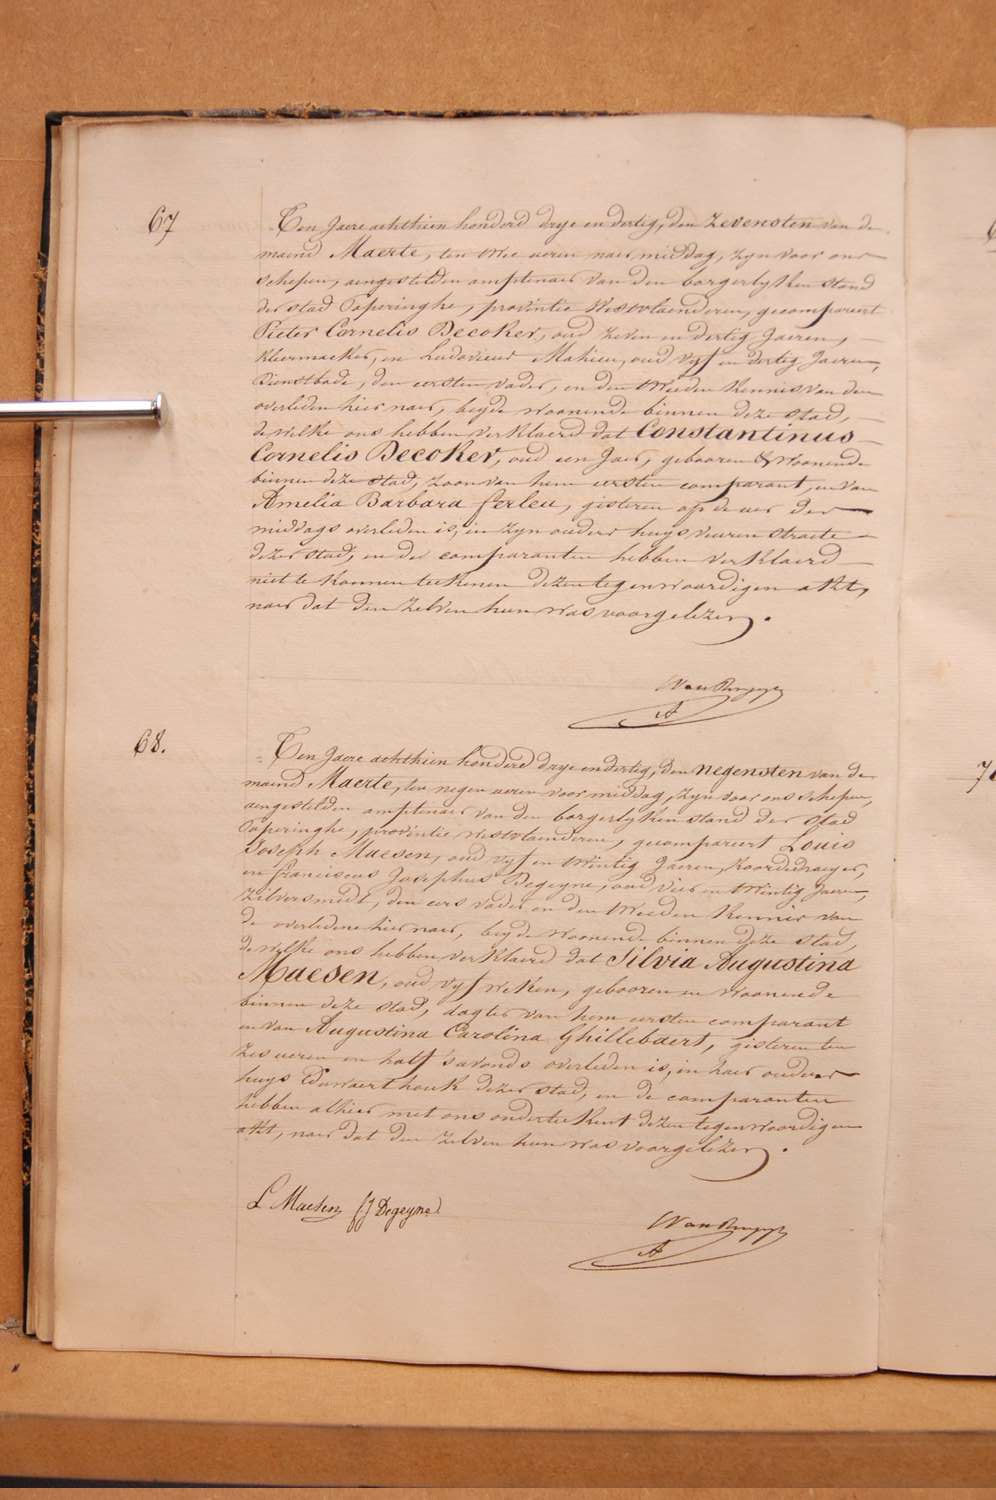 67
Ten Jaere achthien honderd drye en dertig, den Zevensten van de
maend Maerte, ten twee ueren naer middag, zyn voor ons
schepen, aengestelden amptenaer van den borgerlyken stand
der stad Poperinghe, provintie Westvlaenderen, gecompareert
Pieter Cornelis Decoker, oud zeven en dertig Jaeren,
kleermaeker, en Ludovicus Mahieu, oud vyf en dertig Jaeren,
Dienstbode, den eersten vader, en den tweeden kennis van den
overleden hier naer, beyde woonende binnen deze stad,
de welke ons hebben verklaerd dat Constantinus
Cornelis Decoker, oud een Jaer, gebooren & woonende
binnen deze stad, zoon van hem eersten comparant, en van
Amelia Barbara ferleu, gisteren op de uer der
middags overleden is, in zyn ouders huys veuren straete
dezer stad, en de comparanten hebben verklaerd
niet te konnen teekenen dezen tegenwoordigen akt,
naer dat den zelven hun was voorgelezen.
68.
Ten Jaere achthien honderd drye en dertig, den negensten van de
maend Maerte, ten negen ueren voor middag, zyn voor ons schepen,
aengestelden amptenaer van den borgerlyken stand der stad
Poperinghe, provintie Westvlaenderen, gecompareert Louis
Joseph Maesen, oud vyf en twintig Jaeren, koordedraeyer,
en franciscus Josephus Degeyne, oud vier en twintig Jaeren,
Zilversmidt, den eers vader en den tweeden kennis van
de overledene hier naer, beyde woonende binnen deze stad,
de welke ons hebben verklaerd dat Silvia Augustina
Maesen, oud vyf weken, gebooren en woonende
binnen deze stad, dogter van hem eersten comparant
en van Augustina Carolina Ghillebaert, gisteren ten
zes ueren en half s'avonds overleden is, in haer ouders
huys Duwaerthouk dezer stad, en de comparanten
hebben alhier met ons onderteekent dezen tegenwoordigen
akt, naer dat den zelven hun was voorgelezen.
L Maesen fJ Degeyne